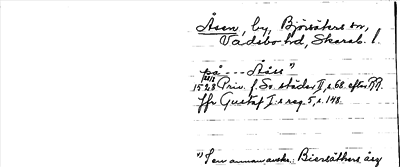 Åsen, by, Björsäters sn,
Vadsbo hd, Skarab. l.
på --- Ååss ")
1523 22/2 Priv. f. Sv. städer II, s. 68 efter RR.
Jfr Gustaf I:s reg. 5, s. 148.
") I en annan avskr.: Biersäthers åsy